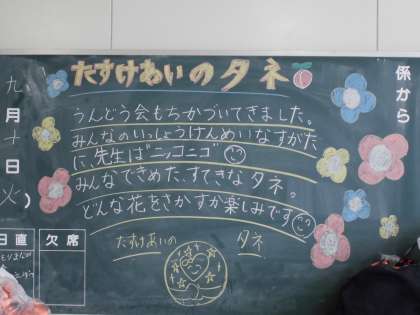 たすけあいのタネ
うんどう会もちかづいてきました。
みんなのいっしょうけんめいなすがた
に、先生は〝ニッコニコ〟
みんなできめた、すてきなタネ。
どんな花をさかすか楽しみです
たすけあいの タネ
係から
九月十日(火)
日直
欠席